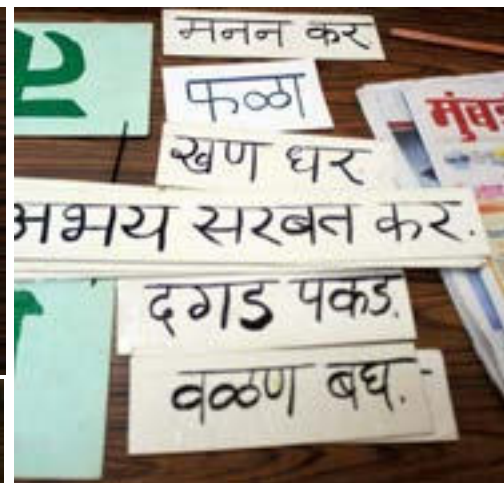 मनन कर
फळा
खण धर
मुंब
अभय सरबत कर.
दगड पकड.
वळण बघ.